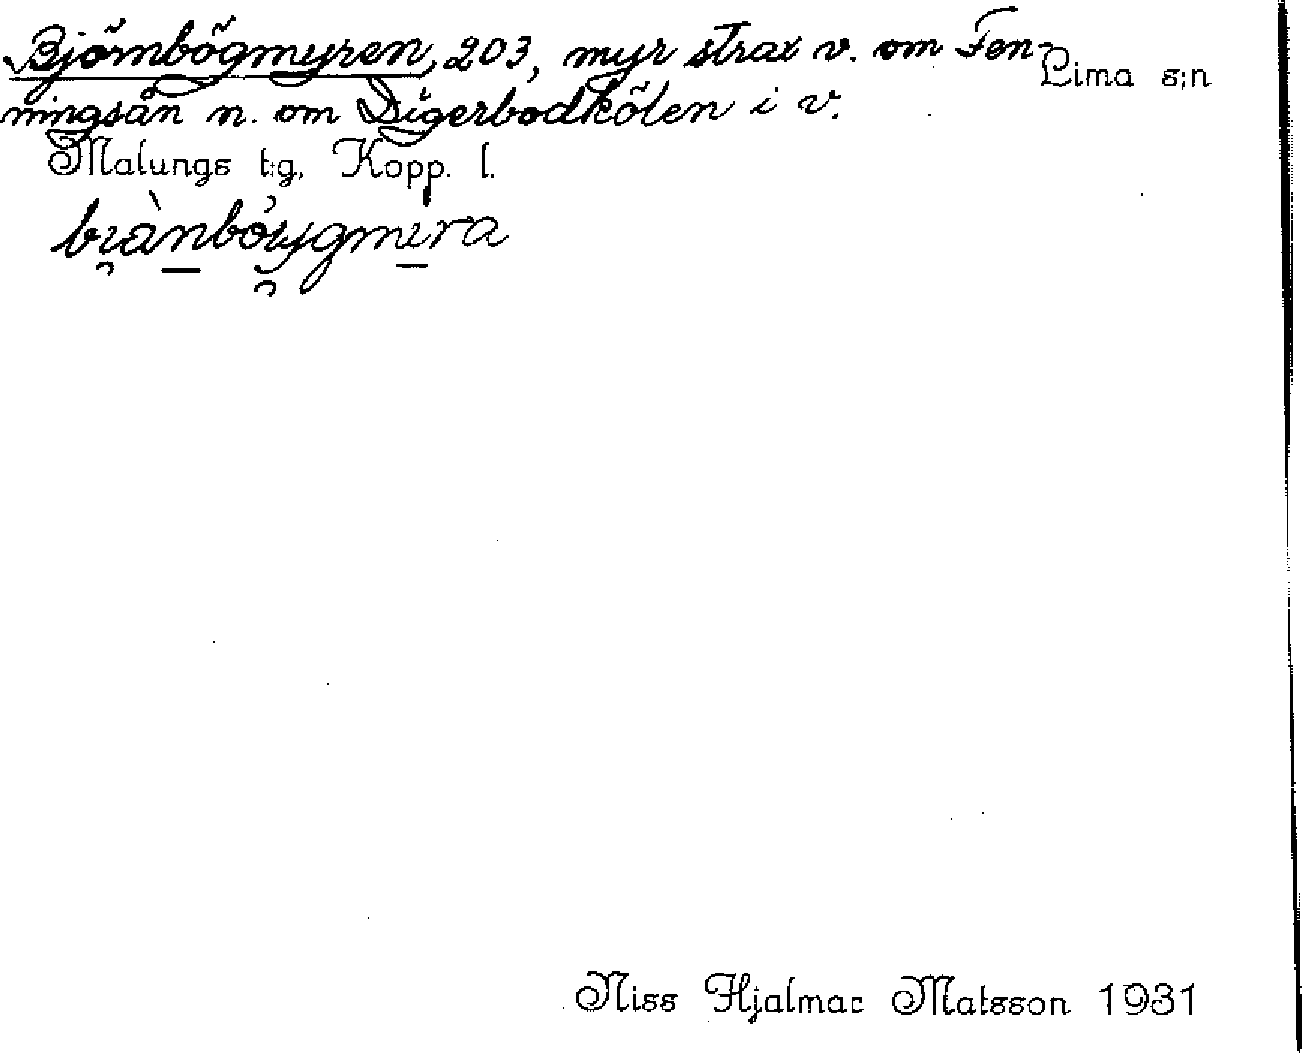 Björnbögmyren, 203, myr strax v. om Fen-
Lima s:n
ningsån n. om Digerbodkölen i v.
Malungs t:g, Kopp. l.
Niss Hjalmar Matsson 1931